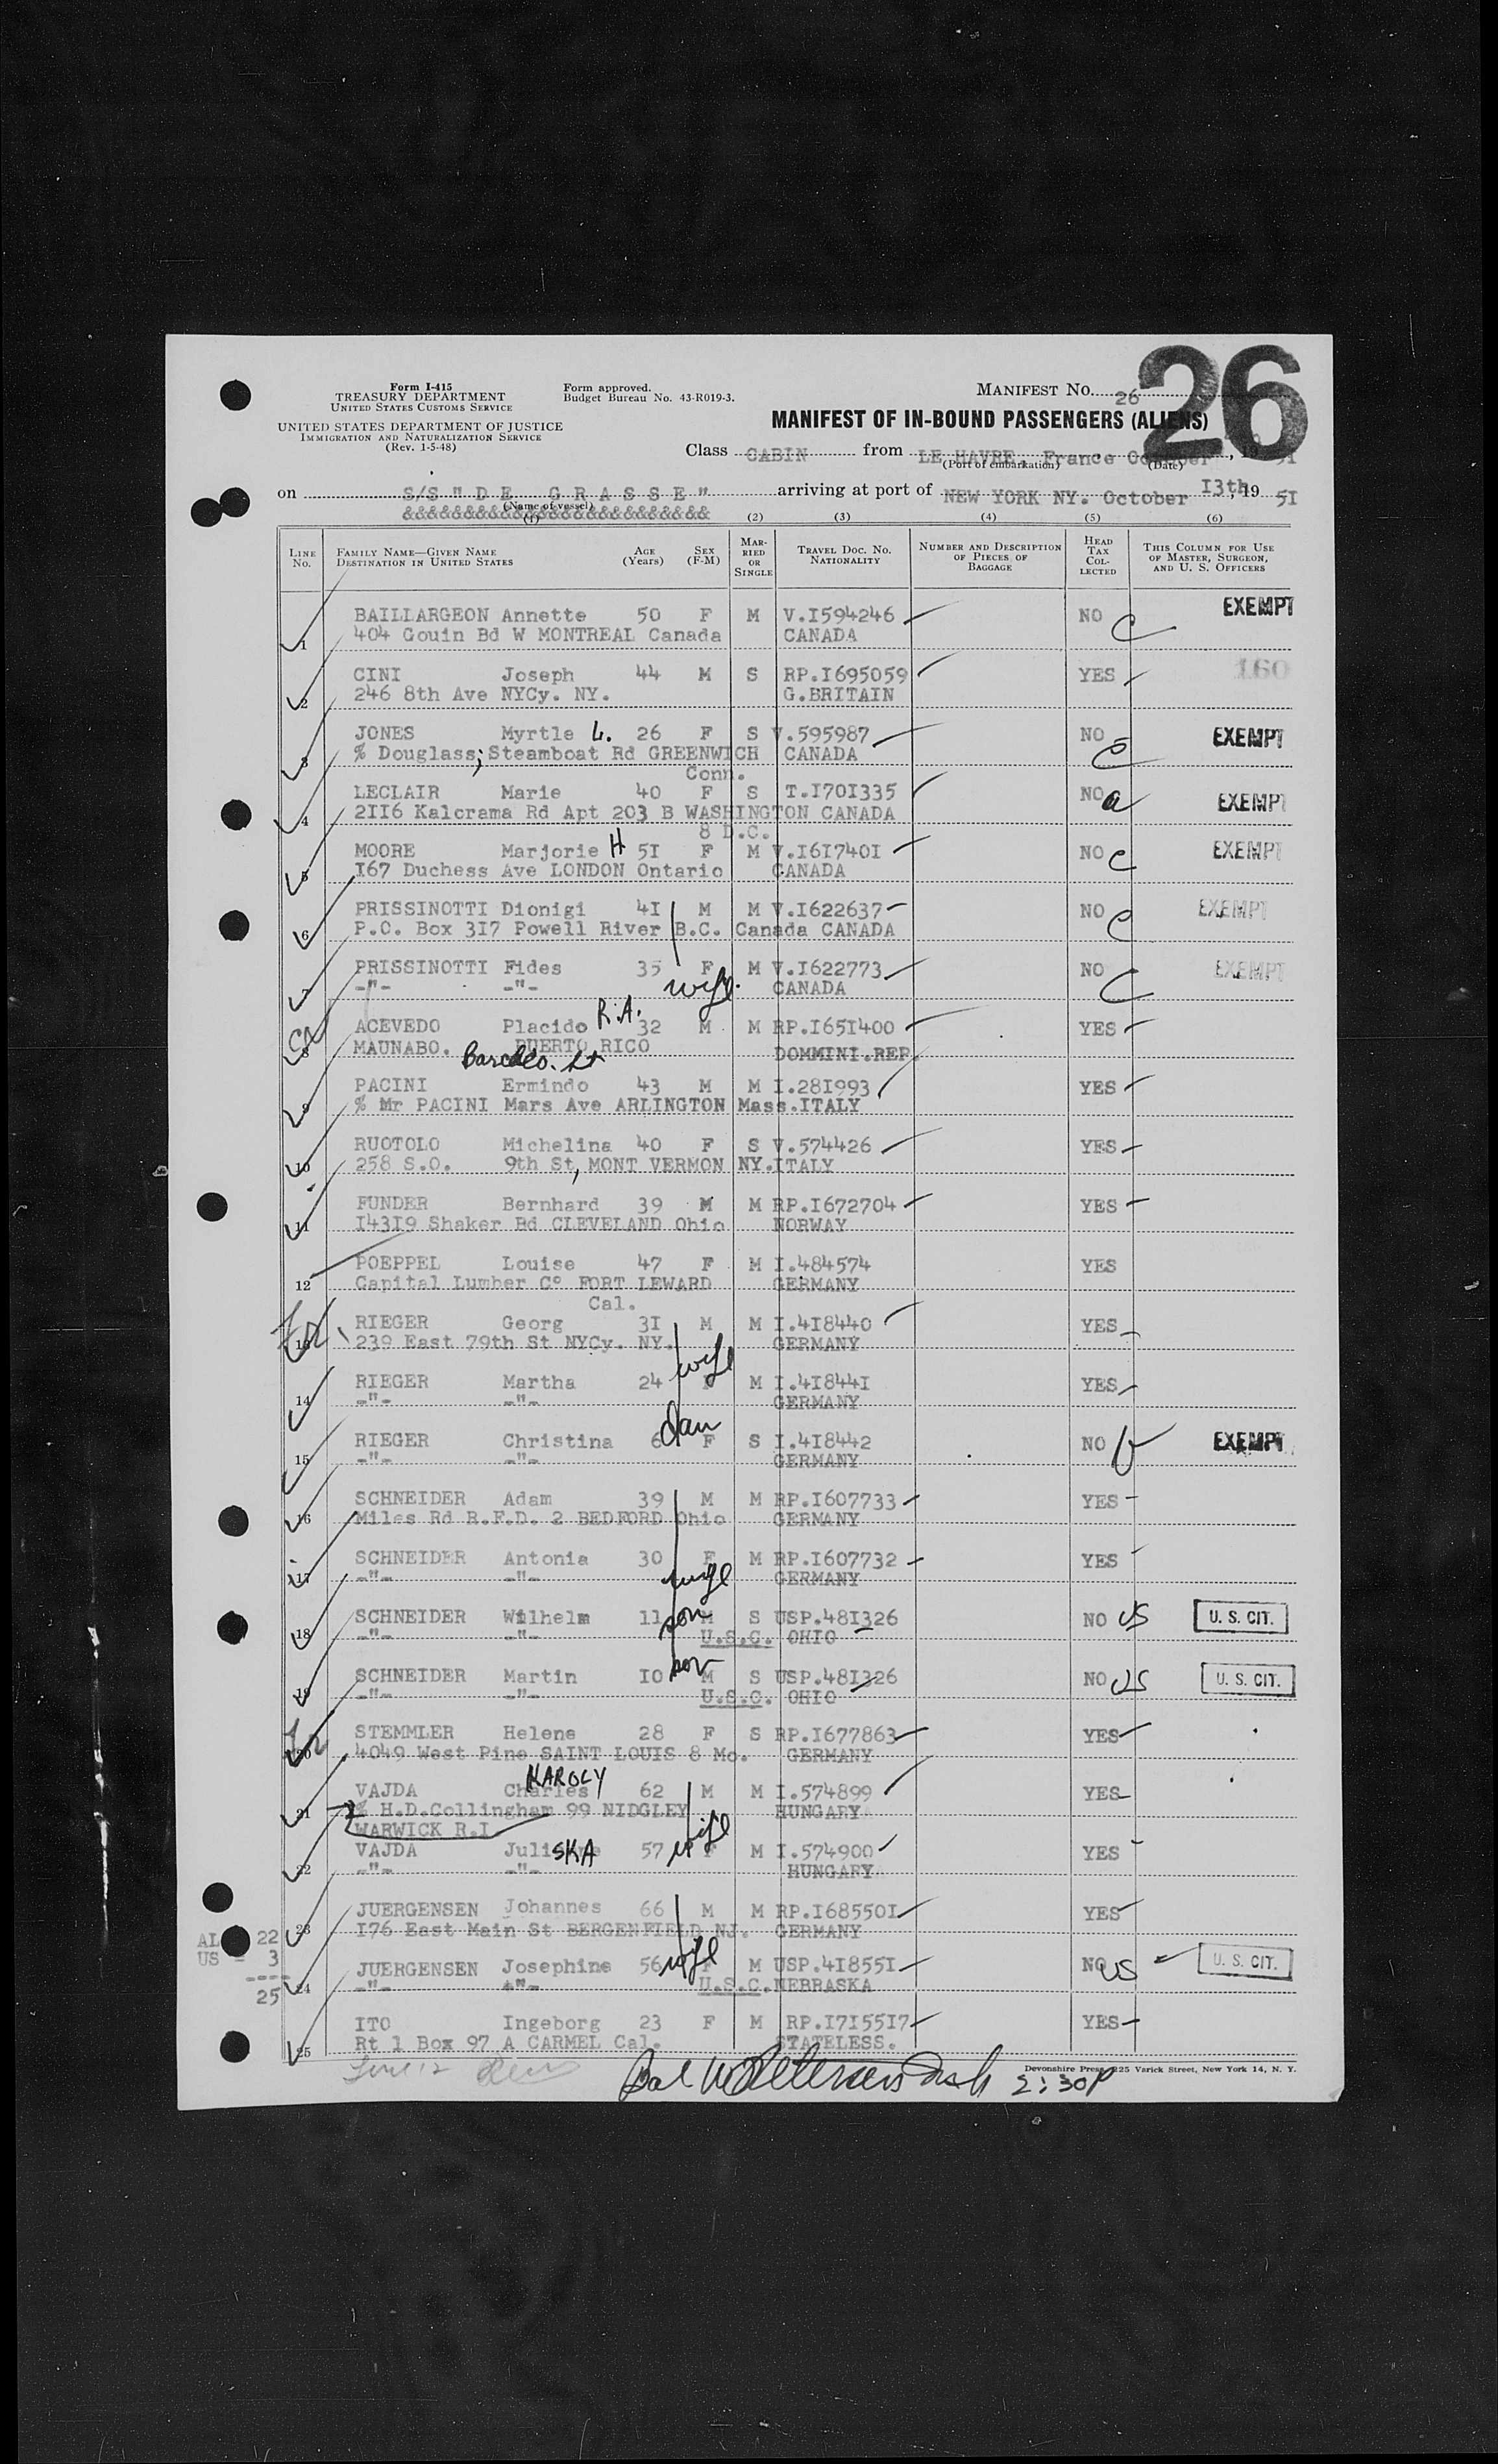 Form I-415
TREASURY DEPARTMENT
UNITED STATES CUSTOMS SERVICE
UNITED STATES DEPARTMENT OF JUSTICE
IMMIGRATION AND NATURALIZATION SERVICE
(Rev. 1-5-48)
Form approved.
Budget Bureau No. 43-R019-3.
MANIFEST NO. 26
26
MANIFEST OF IN-BOUND PASSENGERS (ALIENS)
Class CABIN from LE HAVRE, France October , 19 51
(Port of embarkation) (Date)
on S/S "DE GRASSE" arriving at port of NEW YORK NY. October I3th 19 5I
(Name of vessel)
&&&&&&&&&&&&&&&&&&&&&&&&&
(1) (2) (3) (4) (5) (6)
LINE No. FAMILY NAME—GIVEN NAME DESTINATION IN UNITED STATES AGE (Years) SEX (F-M) MARRIED OR SINGLE TRAVEL DOC. NO. NATIONALITY NUMBER AND DESCRIPTION OF PIECES OF BAGGAGE HEAD TAX COLLECTED THIS COLUMN FOR USE OF MASTER, SURGEON, AND U. S. OFFICERS
BAILLARGEON Annette 50 F M V.I594246 NO C EXEMPT
1 404 Gouin Bd W MONTREAL Canada CANADA
CINI Joseph 44 M S RP.I695059 YES 160
2 246 8th Ave NYCy. NY. G.BRITAIN
JONES Myrtle L. 26 F S V.595987 NO C EXEMPT
3 % Douglass; Steamboat Rd GREENWICH CANADA
Conn.
LECLAIR Marie 40 F S T.I70I335 NO a EXEMPT
4 2II6 Kalorama Rd Apt 203 B WASHINGTON CANADA
8 D.C.
MOORE Marjorie H 5I F M V.I6I740I NO C EXEMPT
5 I67 Duchess Ave LONDON Ontario CANADA
PRISSINOTTI Dionigi 4I M M V.I622637 NO C EXEMPT
6 P.O. Box 3I7 Powell River B.C. Canada CANADA
PRISSINOTTI Fides 35 F M V.I622773 NO C EXEMPT
7 -"- -"- wife. CANADA
ACEVEDO Placido R.A. 32 M M RP.I65I400 YES
8 MAUNABO. PUERTO RICO DOMMINI.REP.
PACINI Ermindo 43 M M I.28I993 YES
9 % Mr PACINI Mars Ave ARLINGTON Mass.ITALY
RUOTOLO Michelina 40 F S V.574426 YES
10 258 S.O. 9th St, MONT VERMON NY.ITALY
FUNDER Bernhard 39 M M RP.I672704 YES
11 I43I9 Shaker Bd CLEVELAND Ohio NORWAY
POEPPEL Louise 47 F M I.484574 YES
12 Capital Lumber Cº FORT LEWARD GERMANY
Cal.
RIEGER Georg 3I M M I.4I8440 YES
13 239 East 79th St NYCy. NY. GERMANY
wife
RIEGER Martha 24 F M I.4I844I YES
14 -"- -"- GERMANY
dau
RIEGER Christina 6 F S I.4I8442 NO EXEMPT
15 -"- -"- GERMANY
SCHNEIDER Adam 39 M M RP.I607733 YES
16 Miles Rd R.F.D. 2 BEDFORD Ohio GERMANY
SCHNEIDER Antonia 30 F M RP.I607732 YES
17 -"- -"- wife GERMANY
SCHNEIDER Wilhelm 11 son M S USP.48I326 NO US U. S. CIT.
18 -"- -"- U.S.C. OHIO
SCHNEIDER Martin IO son M S USP.48I326 NO US U. S. CIT.
19 -"- -"- U.S.C. OHIO
STEMMLER Helene 28 F S RP.I677863 YES
20 4049 West Pine SAINT LOUIS 8 Mo. GERMANY
VAJDA Charles KAROLY 62 M M I.574899 YES
21 % H.D.Collingham 99 NIDGLEY HUNGARY
WARWICK R.I
VAJDA Juli SKA 57 wife F M I.574900 YES
22 -"- -"- HUNGARY
JUERGENSEN Johannes 66 M M RP.I68550I YES
23 I76 East Main St BERGENFIELD NJ. GERMANY
AL 22
US - 3
----
25
JUERGENSEN Josephine 56 wife F M USP.4I855I NO US U. S. CIT.
24 -"- -"- U.S.C. NEBRASKA
ITO Ingeborg 23 F M RP.I7I55I7 YES
25 Rt 1 Box 97 A CARMEL Cal. STATELESS.
Line 12
2:30P
Devonshire Press, 225 Varick Street, New York 14, N. Y.